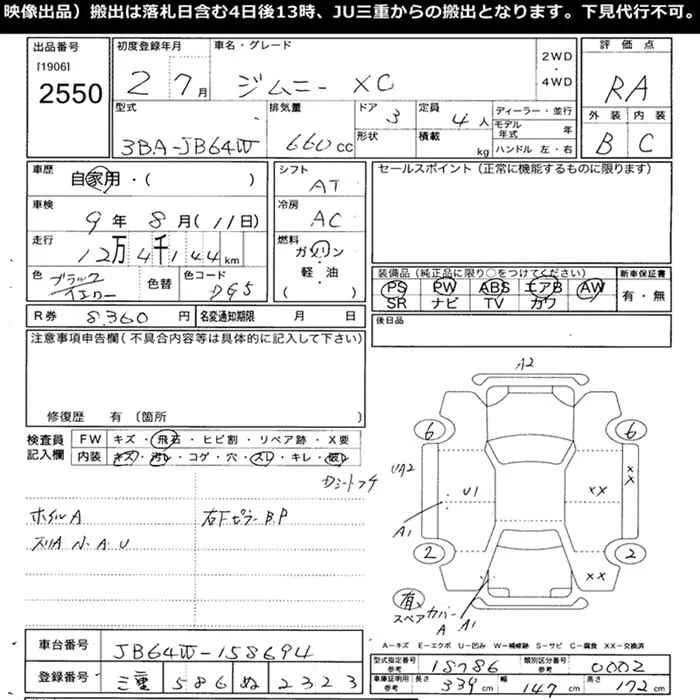 映像出品）搬出は落札日含む4日後13時、JU三重からの搬出となります。下見代行不可。
出品番号
[1906]
2550
初度登録年月
2 7月
車名・グレード
ジムニー XC
2WD
・
4WD
評価点
RA
外装 内装
B C
型式
3BA-JB64W
排気量
660cc
ドア
3
形状
定員
4人
積載
kg
ディーラー・並行
モデル年式 年
ハンドル 左・右
車歴
自家用・( )
車検
9年 8月(11日)
走行
12万4千144km
色
ブラック
イエロー
色替
色コード
シフト
AT
冷房
AC
燃料
ガソリン
・
軽・油
( )
セールスポイント（正常に機能するものに限ります）
装備品（純正品に限り○をつけてください）
PS PW ABS エアB AW
SR ナビ TV カワ
新車保証書
有・無
後日品
R券 8,360円
名変通知期限 月 日
注意事項申告欄（不具合内容等は具体的に記入して下さい）
修復歴 有（箇所 ）
検査員
記入欄
FW キズ・飛石・ヒビ割・リペア跡・X要
内装 キズ・汚レ・コゲ・穴・スレ・キレ・破レ
ホイルA
右Fピラー B.P
A2
6 6
UA2
U1
XX
XX
A1
2 2
XX
有
スペアカバー
A
A1
A－キズ E－エクボ U－凹み W－補修跡 S－サビ C－腐食 XX－交換済
車台番号
JB64W-158694
登録番号
三重 586 ぬ 2323
型式指定番号
参考
18786
類別区分番号
参考
0002
車庫証明用
参考
長さ 339cm 幅 147cm 高さ 172cm